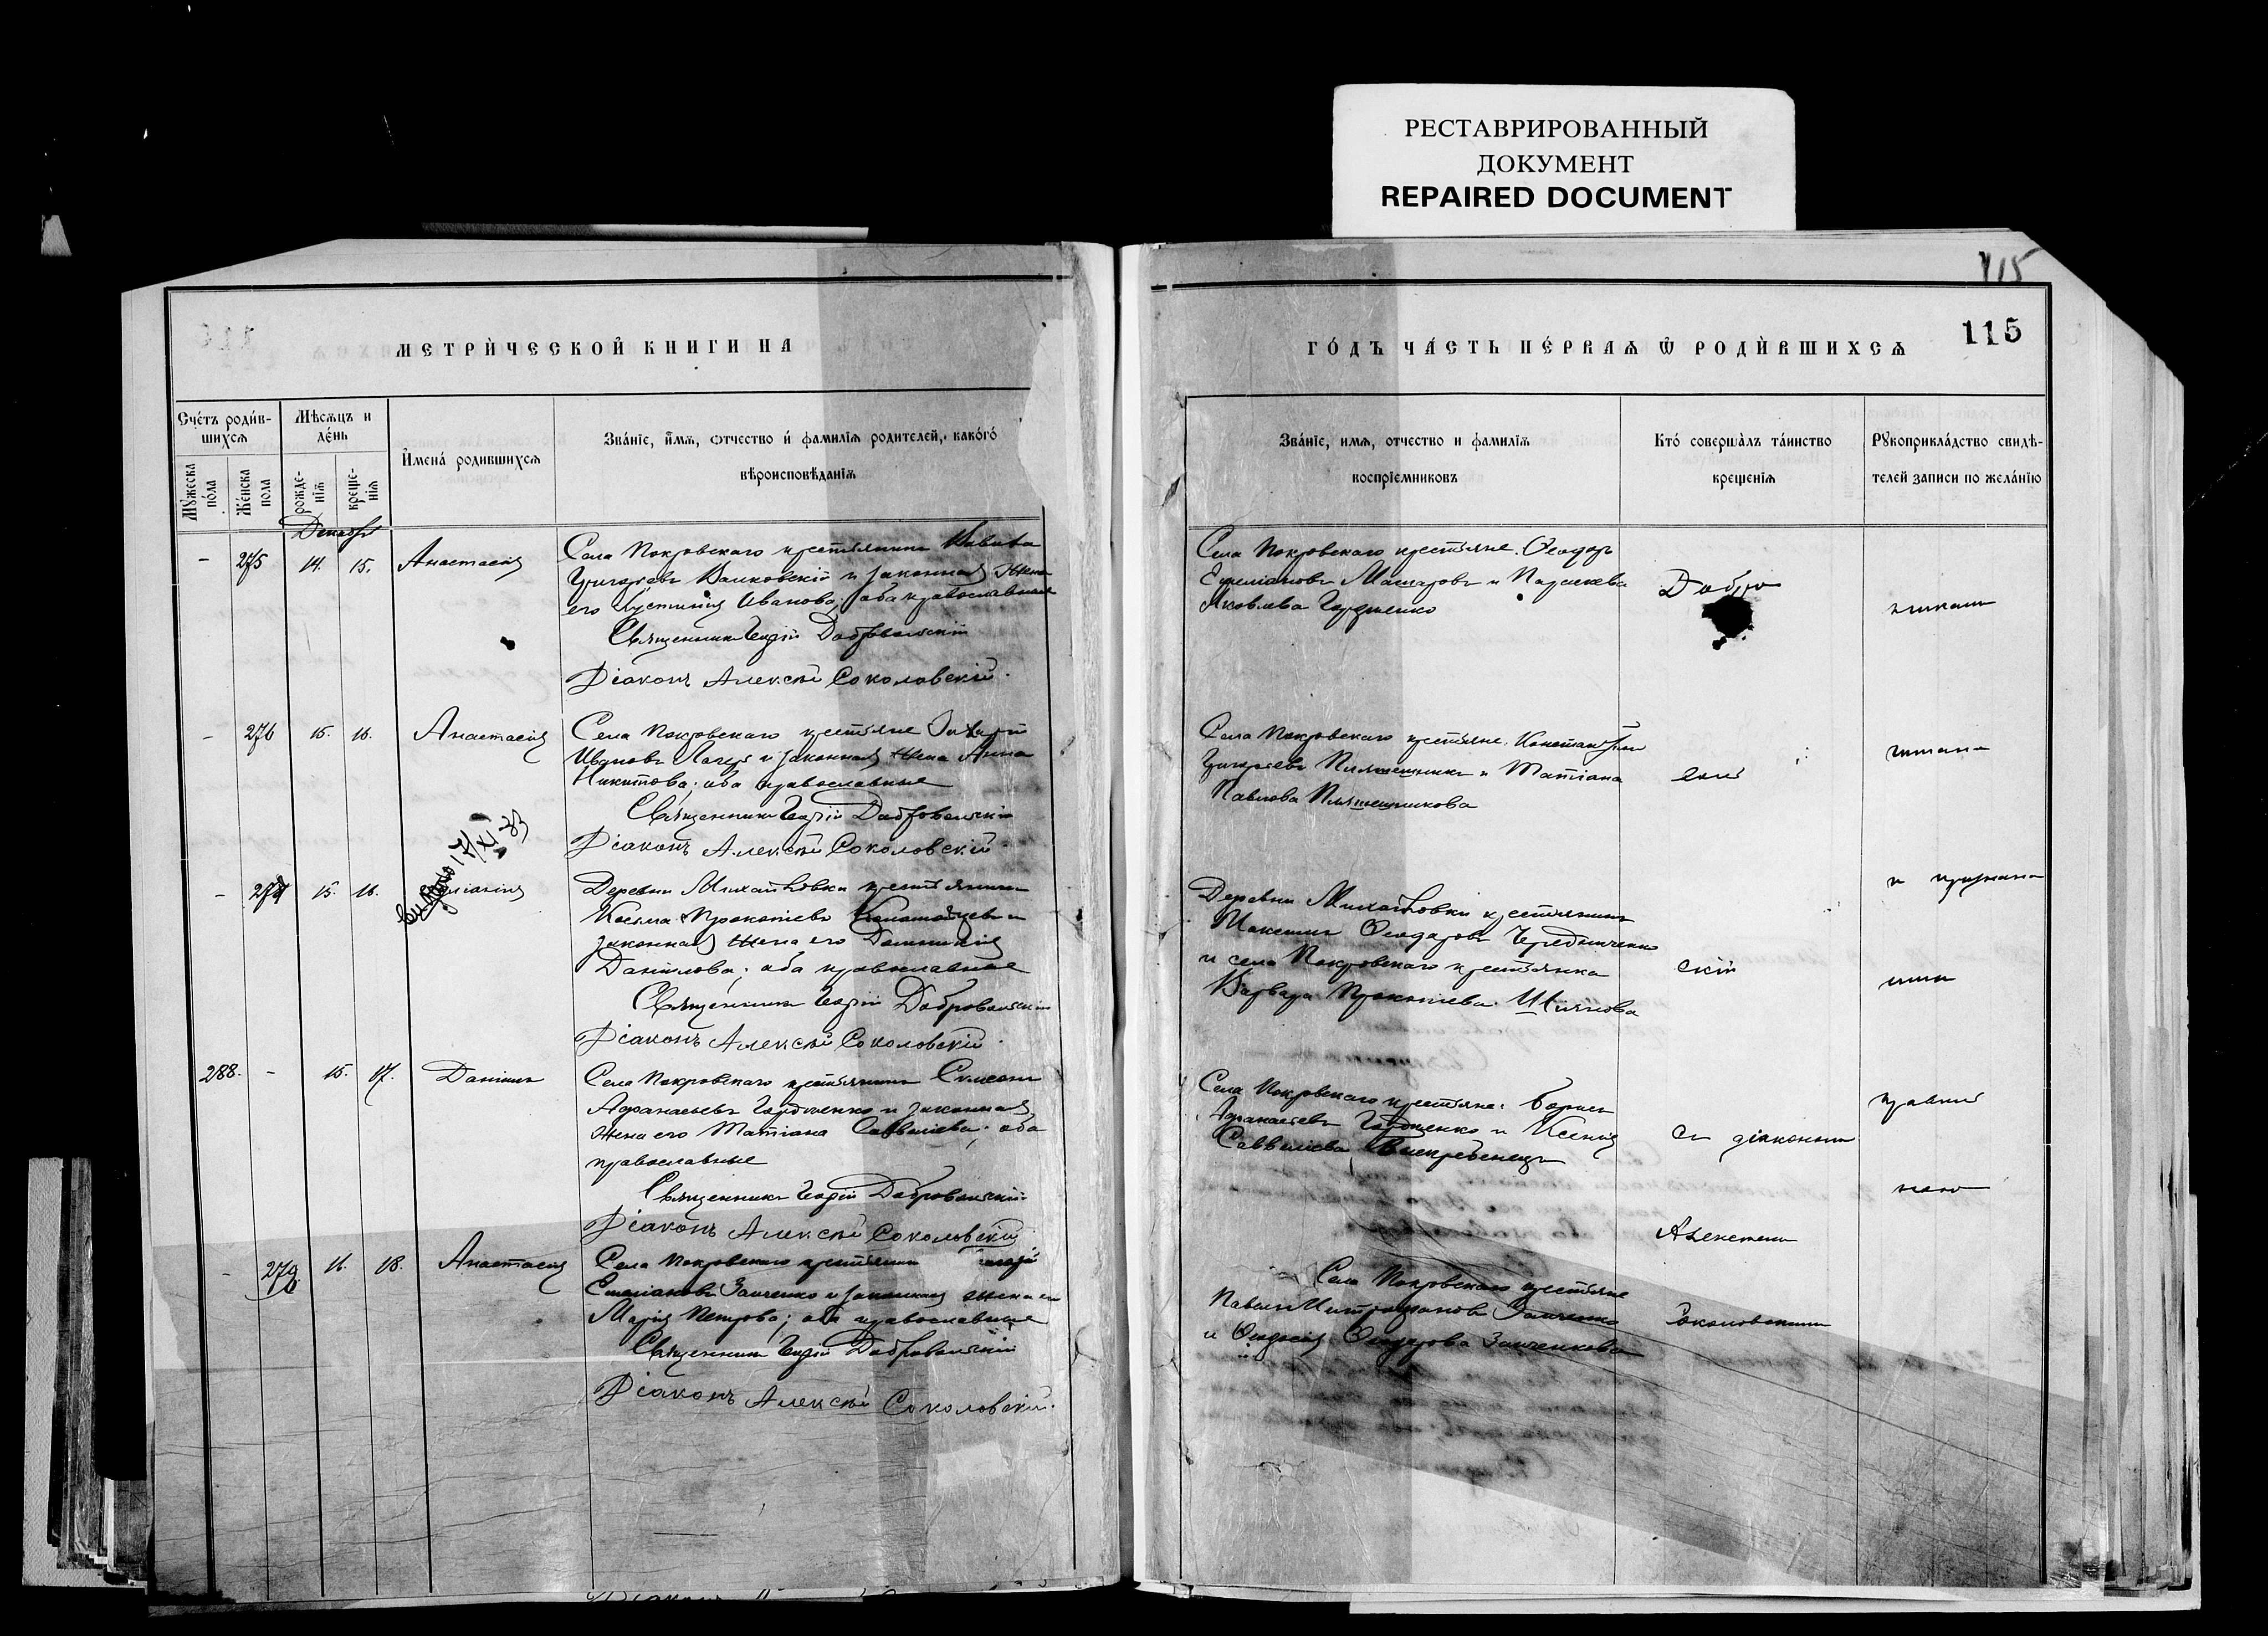 РЕСТАВРИРОВАННЫЙ
ДОКУМЕНТ
REPAIRED DOCUMENT
115
115
МЕТРИ́ЧЕСКОЙ КНИГИ НА
ГО́ДЪ ЧА́СТЬ ПЕ́РВАѦ Ѿ РОДИ́ВШИХСѦ
Сче́тъ роди́в-
шихсѧ
Мѣсѧцъ и
де́нь
Мꙋжеска
по́ла
Же́нска
пола
рожде-
нїѧ
креще-
нїѧ
И҆мена́ родившихсѧ
Зва́нїе, и҆мѧ, ѻтчество и҆ фамилїѧ родителей, како́гѡ
вѣроисповѣданїѧ
Зва́нїе, имѧ, отчество и фамилїѧ
воспрїемниковъ
Кто́ соверша̀лъ та́инство
крещенїѧ
Рꙋкоприкла́дство свидѣ-
телей записи по жела́нїю
Декабрь
- 275 14. 15. Анастасія
Села Покровскаго крестьянинъ
Григорьевъ Волковскій и законная жена
его Іустинія Иванова; оба православные
Священникъ Георгій Добровольскій
Діаконъ Алексѣй Соколовскій.
Села Покровскаго крестьяне: Ѳеодоръ
Емеліановъ Машаровъ и Параскева
Яковлева Гордіенко
Добро
- 276 15. 16. Анастасія
Села Покровскаго крестьяне Захарій
Ивановъ и законная жена Анна
Никитова; оба православные
Священникъ Георгій Добровольскій
Діаконъ Алексѣй Соколовскій
Села Покровскаго крестьяне: Константинъ
Григорьевъ и Татіана
Павлова
воль
читана
17/XI 33
- 15. 16.
Деревни Михайловки крестьянинъ
Косьма Прокопіевъ и
законная жена его Домникія
Данилова; оба православные
Священникъ Георгій Добровольскій
Діаконъ Алексѣй Соколовскій.
Деревни Михайловки крестьянинъ
Максимъ Ѳеодоровъ Чередниченко
и села Покровскаго крестьянка
Варвара Прокопіева
скій
и признана
288. - 15. 17. Даніилъ
Села Покровскаго крестьянинъ Симеонъ
Аѳанасьевъ Гордіенко и законная
жена его Татіана Савеліева; оба
православные
Священникъ Георгій Добровольскій
Діаконъ Алексѣй Соколовскій
Села Покровскаго крестьяне: Борисъ
Аѳанасьевъ Гордіенко и Ксенія
Савеліева
съ діакономъ
правиль
ною
Алексѣемъ
- 279 16. 18. Анастасія
Села Покровскаго крестьянинъ
Стефановъ Заиченко и законная жена его
Марія Петрова; оба православные
Священникъ Георгій Добровольскій
Діаконъ Алексѣй Соколовскій.
Села Покровскаго крестьяне
Павелъ Митрофановъ Заиченко
и Ѳеодосія Ѳеодорова Заиченкова
Соколовскимъ